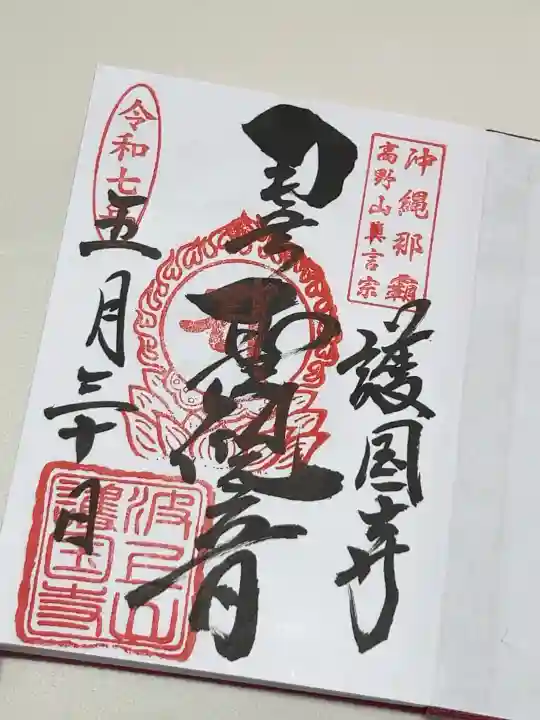 沖縄那覇
高野山眞言宗
護国寺
聖観音
令和七年
五月三十日
波上山
護国寺